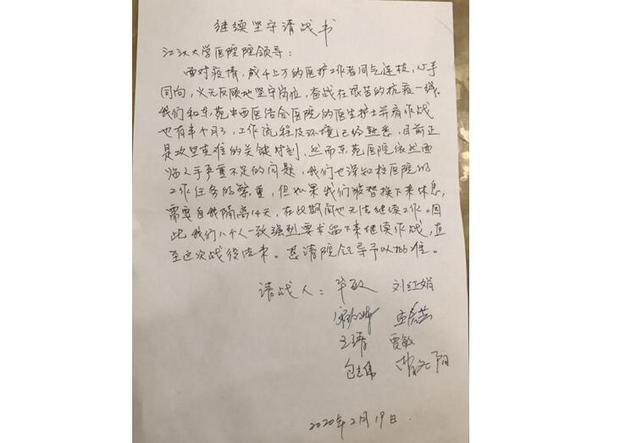 继续坚守请战书
江汉大学医院院领导：
面对疫情，成千上万的医护工作者同气连枝，心手
同向，义无反顾地坚守岗位，奋战在艰苦的抗疫一线。
我们和东苑中西医结合医院的医生护士并肩作战
也有半个月了，工作流程及环境已经熟悉，目前正
是攻坚克难的关键时刻，然而东苑医院依然面
临人手严重不足的问题，我们也深知校医院的
工作任务的繁重，但如果我们被替换下来休息，
需要自我隔离14天，在此期间也无法继续工作。因
此我们八个人一致强烈要求留下来继续作战，直
至这次战役结束。恳请院领导予以批准。
请战人：华敏 刘红娟
王靖 贾敏
2020年2月19日.